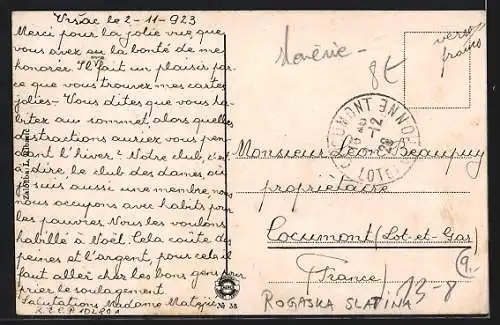 Vrsac le 2-11-923
Merci pour la jolie vue que
vous avez eu la bonté de me
honorée. Il fait un plaisir par-
ce que vous trouvez mes cartes
jolies - Vous dites que vous ha-
bitez au sommet, alors quelles
distractions auriez vous pen-
dant l'hiver? Notre club, c'est
à dire, le club des dames, où
je suis aussi une membre, nous
nous occupons avec habits pour
les pauvres. Nous les voulons
habillé à Noël. Cela coûte des
peines et l'argent, pour cela il
faut aller chez les bons gens
prier le soulagement
Salutations Madame
verso
franco
8t
COCUMONT
12
LOT-ET-GARONNE
Monsieur Léon Beaupuy
propriétaire
Cocumont (Lot-et-Gar)
(France)
9.-
13-8
ROGASKA SLATINA
№ 38